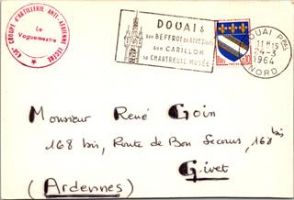 458e GROUPE D'ARTILLERIE ANTI-AERIENNE LEGERE
Le
Vaguemestre
DOUAI
SON BEFFROI
SON CARILLON
SA CHARTREUSE MUSÉE
DOUAI Pal
11H15
24-3
1964
NORD
Monsieur René Goin
168 bis, Route de Bon Secours, 168 bis
Givet
(Ardennes)